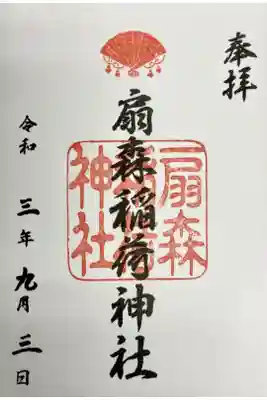 奉拝
扇森稲荷神社
扇森
稲荷
神社
令和三年九月三日